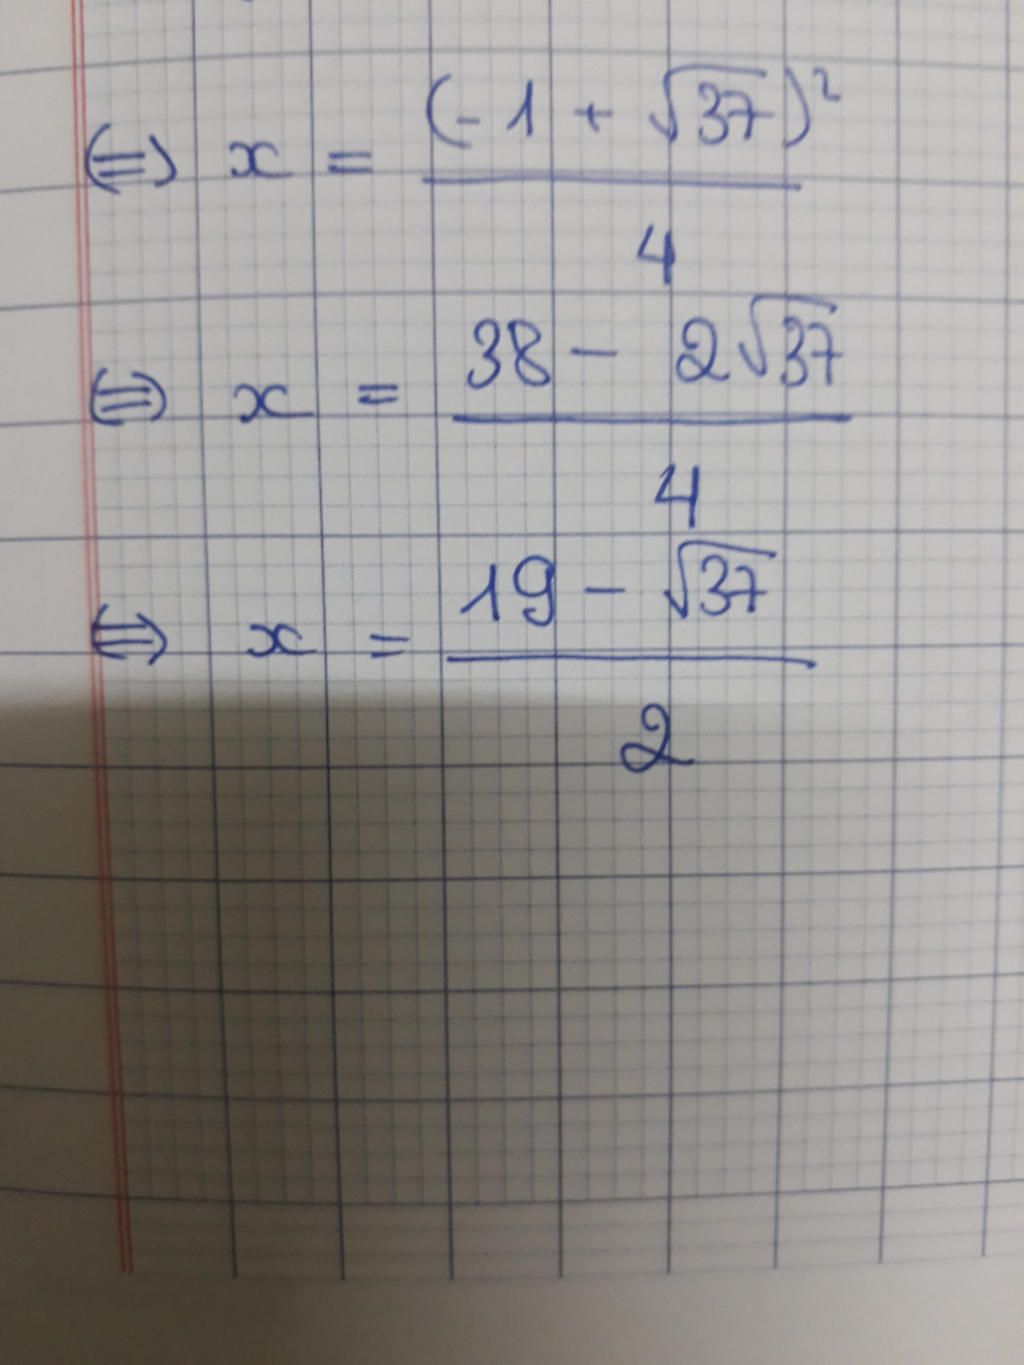 (⇔) x = (-1 + √37)² / 4
(⇔) x = 38 - 2√37 / 4
(⇔) x = 19 - √37 / 2